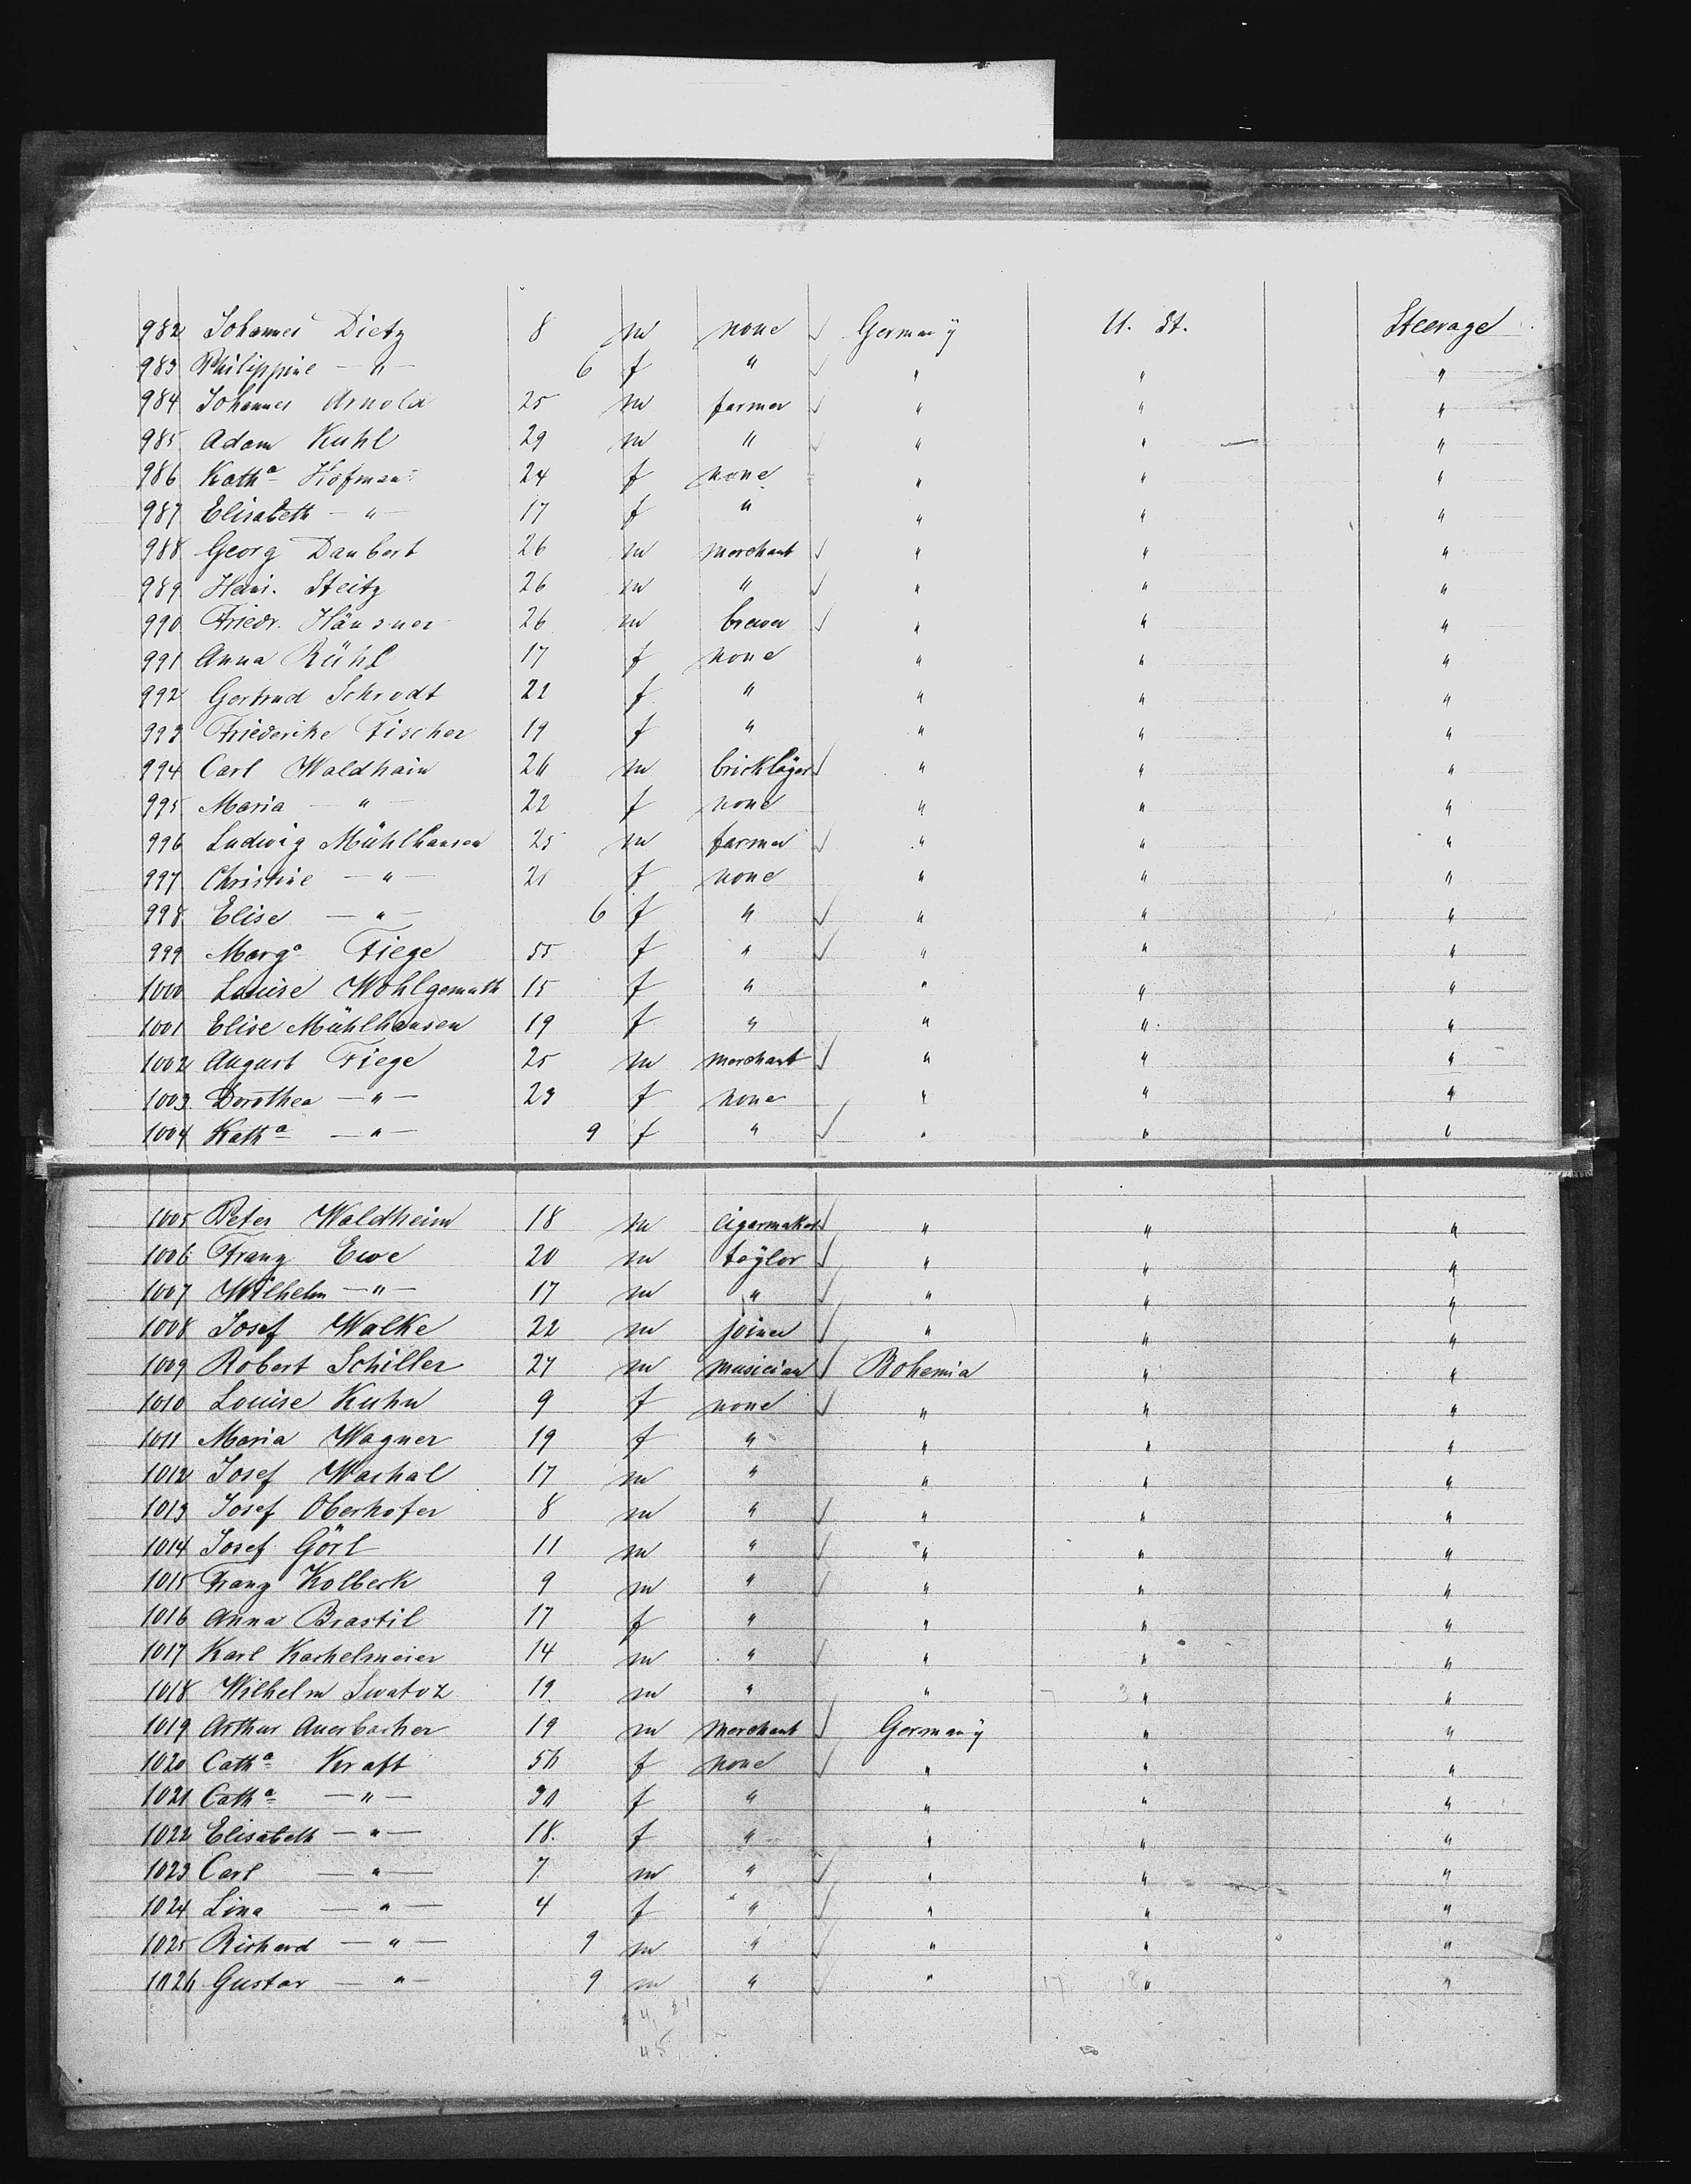 982 Johannes Dietz 8 m none Germany U. St. Steerage
983 Philippine — " — 6 f " " " "
984 Johannes Arnold 25 m farmer " " "
985 Adam Kuhl 29 m " " " "
986 Kath<sup>a</sup> Hofman 24 f none " " "
987 Elisabeth — " — 17 f " " " "
988 Georg Daubert 26 m merchant " " "
989 Heinr. Steitz 26 m " " " "
990 Friedr. Häusner 26 m brewer " " "
991 Anna Rühl 17 f none " " "
992 Gertrud Schrodt 22 f " " " "
993 Friederike Fischer 19 f " " " "
994 Carl Waldhain 26 m bricklayer " " "
995 Maria — " — 22 f none " " "
996 Ludwig Mühlhausen 25 m farmer " " "
997 Christine — " — 21 f none " " "
998 Elise — " — 6 f " " " "
999 Marg<sup>a</sup> Fiege 55 f " " " "
1000 Louise Wohlgemuth 15 f " " " "
1001 Elise Mühlhausen 19 f " " " "
1002 August Fiege 25 m merchant " " "
1003 Dorothea — " — 23 f none " " "
1004 Kath<sup>a</sup> — " — 9 f " " " "
1005 Peter Waldheim 18 m cigarmaker " " "
1006 Franz Ewe 20 m taylor " " "
1007 Wilhelm — " — 17 m " " " "
1008 Josef Walke 22 m joiner " " "
1009 Robert Schiller 27 m musician Bohemia " "
1010 Louise Kuhn 9 f none " " "
1011 Maria Wagner 19 f " " " "
1012 Josef Washal 17 m " " " "
1013 Josef Oberhofer 8 m " " " "
1014 Josef Görl 11 m " " " "
1015 Franz Kolbeck 9 m " " " "
1016 Anna Brastil 17 f " " " "
1017 Karl Kashelmeier 14 m " " " "
1018 Wilhelm Swatoz 19 m " " " "
1019 Arthur Auerbacher 19 m merchant Germany " "
1020 Cath<sup>a</sup> Kraft 56 f none " " "
1021 Cath<sup>a</sup> — " — 30 f " " " "
1022 Elisabeth — " — 18. f " " " "
1023 Carl — " — 7. m " " " "
1024 Lina — " — 4 f " " " "
1025 Richard — " — 9 m " " " "
1026 Gustav — " — 9 m " " " "
45